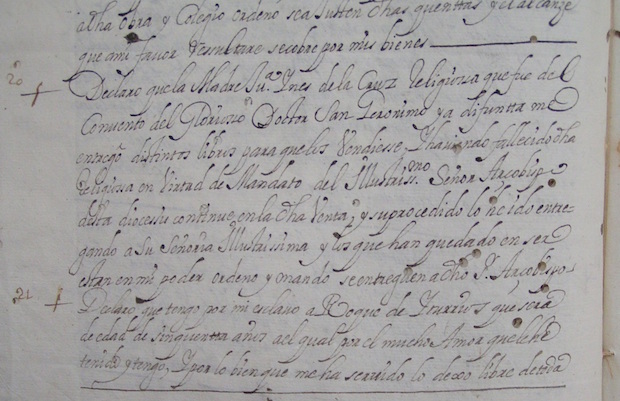 dha obra y Colegio ordeno se ajusten dhas quenttas y el alcanze
que a mi favor resultare se cobre por mis bienes
20 Declaro que la Madre Ju.ª Ynes de la Cruz Religiosa que fue del
Convento del Glorioso Doctor San Geronimo ya difuntta me
entregó distintos libros para que los Vendiesse, Y haviendo fallecido dha
religiosa en Virtud de Mandato del Illustriss.mo Señor Arçobispo
desta diocessis continue en la dha Venta, y su procedido lo he ido entre
gando a Su Señoria Illustrissima y los que han quedado en ser
estan en mi poder ordeno y mando se entreguen a dho S.r Arçobispo
21 Declaro que tengo por mi esclavo a Roque de que será
de edad de sinquentta años al qual por el mucho Amor que le he
tenido y tengo, Y por lo bien que me ha servido lo dexo libre de toda